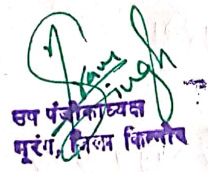 Singh
उप पंजीकाध्यक्ष
मूरंग, जिला किन्नौर